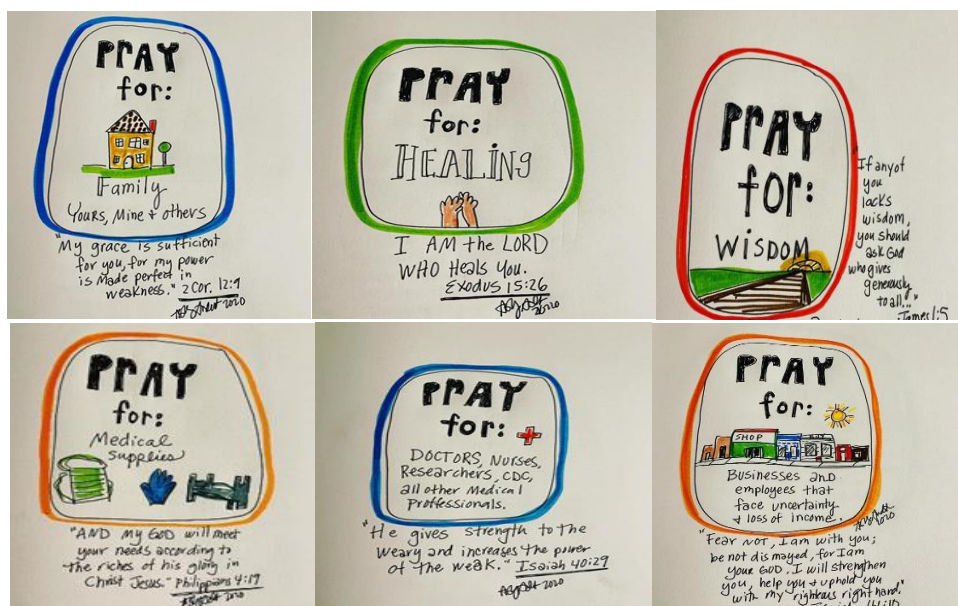 PRAY
for:
Family
Yours, Mine + others
"My grace is sufficient
for you, for my power
is Made perfect in
weakness." 2 Cor. 12:9
2020
PRAY
for:
HEALiNg
I AM the LORD
WHO Heals You.
Exodus 15:26
2020
PRAY
for:
WiSDOM
"If any of
you
lacks
wisdom,
you should
ask God
who gives
generously
to all..."
James 1:5
PRAY
for:
Medical
Supplies
"AND my GOD will meet
your needs according to
the riches of his glory in
Christ Jesus." Philippians 4:19
2020
PRAY
for:
DOCTORS, Nurses,
Researchers, CDC,
all other Medical
Proffessionals.
"He gives strength to the
weary and increases the power
of the weak." Isaiah 40:29
2020
PRAY
for:
SHOP
Businesses and
employees that
face uncertainty
+ loss of income.
2020
"Fear NOT, I am with you;
be not dismayed, for I am
your GOD. I will strengthen
you, help you + uphold you
with my righteous right hand."